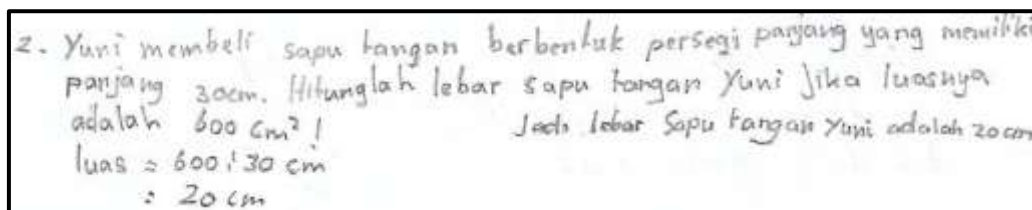 2. Yuni membeli sapu tangan berbentuk persegi panjang yang memiliki
panjang 30cm. Hitunglah lebar sapu tangan Yuni Jika luasnya
adalah 600 cm² !
Jadi lebar Sapu tangan Yuni adalah 20 cm
luas = 600 : 30 cm
= 20 cm